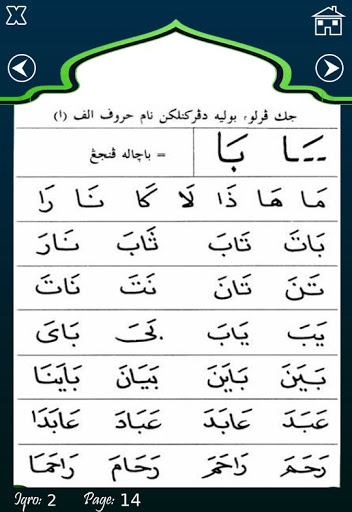 جك ڤرلو، بوليه دڤركنلكن نام حروف الف (ا)
--َا بَا = باچاله ڤنجڠ
مَا هَا ذَا لَا كَا نَا رَا
بَاتَ تَابَ ثَابَ نَارَ
تَنَ تَانَ نَتَ نَاتَ
يَبَ يَابَ بَىَ بَاىَ
بَيَنَ بَايَنَ بَيَانَ بَايَنَا
عَبَدَ عَابَدَ عَبَادَ عَابَدَا
رَحَمَ رَاحَمَ رَحَامَ رَاحَمَا
Iqro: 2 Page: 14